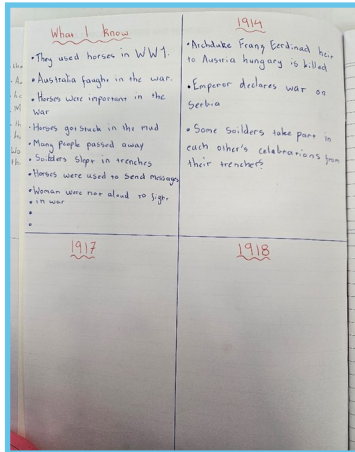 What I Know
• They used horses in WW1.
• Australia faught in the war.
• Horses were important in the
war
• Horses got stuck in the mud
• Many people passed away
• Soilders slept in trenches
• Horses were used to send messages
• Woman were not aloud to fight
• in war
•
•
1914
• Archduke Franz Ferdinad heir
to Austria hungary is killed
• Emperor declares war on
Serbia
• Some soilders take part in
each other's celebrations from
their trenches?
1917
1918